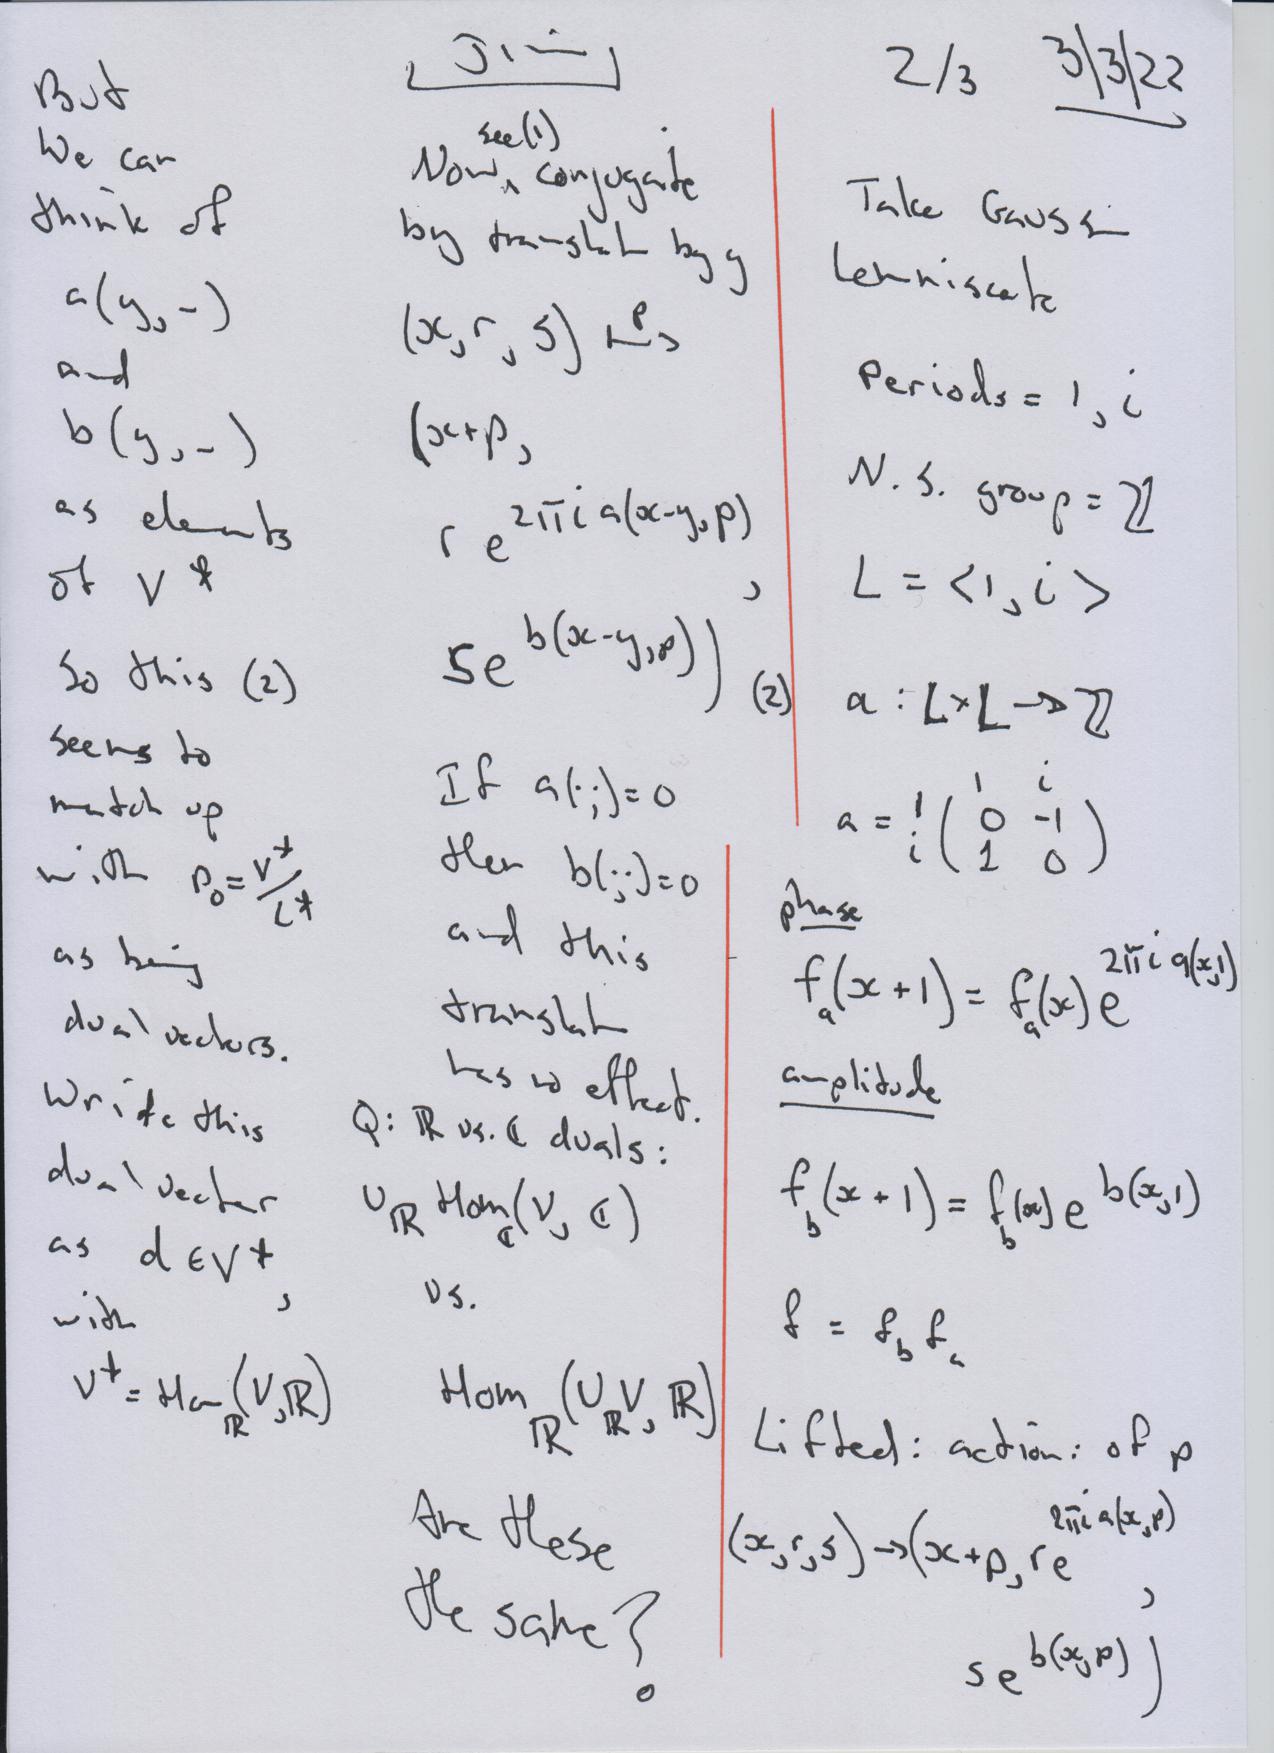 Jim
2/3 3/3/22
But
We can
think of
a(y, -)
and
b(y, -)
as elements
of V*
So this (2)
seems to
match up
with P₀ = V*/L*
as being
dual vectors.
Write this
dual vector
as d ∈ V*,
with
V* = Hom_ℝ(V, ℝ)
see (1)
Now ‸ conjugate
by translat by y
(x, r, s) ↦^p
(x+p,
r e^{2πi a(x-y, p)},
s e^{b(x-y, p)}) (2)
If a(·,·)=0
then b(·,·)=0
and this
translat
has no effect.
Q: ℝ vs. ℂ duals:
U_ℝ Hom_ℂ(V, ℂ)
vs.
Hom_ℝ(U_ℝ V, ℝ)
Are these
the same?
Take Gauss
Lemniscate
Periods = 1, i
N. S. group = ℤ
L = <1, i>
a : L×L → ℤ
1 i
a = 1 ( 0 -1
i 1 0 )
phase
f_a(x+1) = f_a(x) e^{2πi a(x,1)}
amplitude
f_b(x+1) = f_b(x) e^{b(x,1)}
f = f_b f_a
Lifted: action: of p
(x, r, s) → (x+p, r e^{2πi a(x,p)},
s e^{b(x,p)})